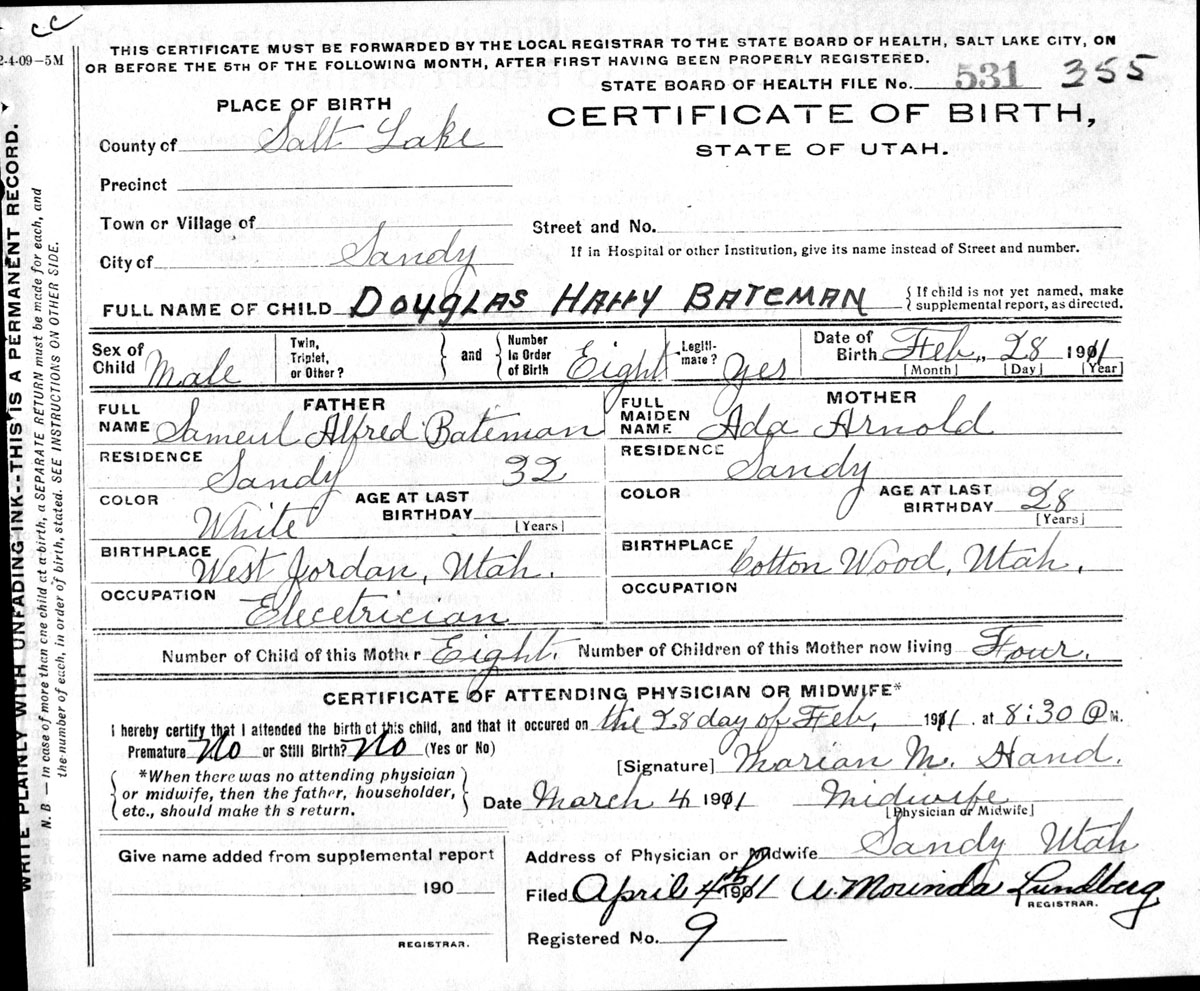 cc
2-4-09-5M
THIS CERTIFICATE MUST BE FORWARDED BY THE LOCAL REGISTRAR TO THE STATE BOARD OF HEALTH, SALT LAKE CITY, ON
OR BEFORE THE 5TH OF THE FOLLOWING MONTH, AFTER FIRST HAVING BEEN PROPERLY REGISTERED.
STATE BOARD OF HEALTH FILE No. 531 355
PLACE OF BIRTH
CERTIFICATE OF BIRTH,
STATE OF UTAH.
County of Salt Lake
Precinct
Town or Village of
Street and No.
City of Sandy
If in Hospital or other Institution, give its name instead of Street and number.
FULL NAME OF CHILD DOUGLAS HARRY BATEMAN { If child is not yet named, make
supplemental report, as directed.
Sex of Child Male Twin, Triplet, or Other? } and { Number In Order of Birth Eight Legiti- mate? Yes Date of Birth Feb, 28 1911
[Month] [Day] [Year]
FATHER MOTHER
FULL NAME Sameul Alfred Bateman FULL MAIDEN NAME Ada Arnold
RESIDENCE Sandy 32 RESIDENCE Sandy
COLOR White AGE AT LAST BIRTHDAY [Years] COLOR AGE AT LAST BIRTHDAY 28 [Years]
BIRTHPLACE West Jordan, Utah. BIRTHPLACE Cotton Wood, Utah.
OCCUPATION Elecetrician OCCUPATION
Number of Child of this Mother Eight. Number of Children of this Mother now living Four.
CERTIFICATE OF ATTENDING PHYSICIAN OR MIDWIFE*
I hereby certify that I attended the birth of this child, and that it occured on the 28 day of Feb, 1911. at 8:30 @ M.
Premature No or Still Birth? No (Yes or No)
[Signature] Marian M. Hand.
{ *When there was no attending physician
or midwife, then the father, householder,
etc., should make th s return. }
Date March 4 1911 Midwife
[Physician or Midwife]
Give name added from supplemental report
190
REGISTRAR.
Address of Physician or Midwife Sandy Utah
Filed April 4th 1911 Mourinda Lundberg
REGISTRAR.
Registered No. 9
WRITE PLAINLY WITH UNFADING INK--THIS IS A PERMANENT RECORD.
N. B.—In case of more than one child at a birth, a SEPARATE RETURN must be made for each, and
the number of each, in order of birth, stated. SEE INSTRUCTIONS ON OTHER SIDE.